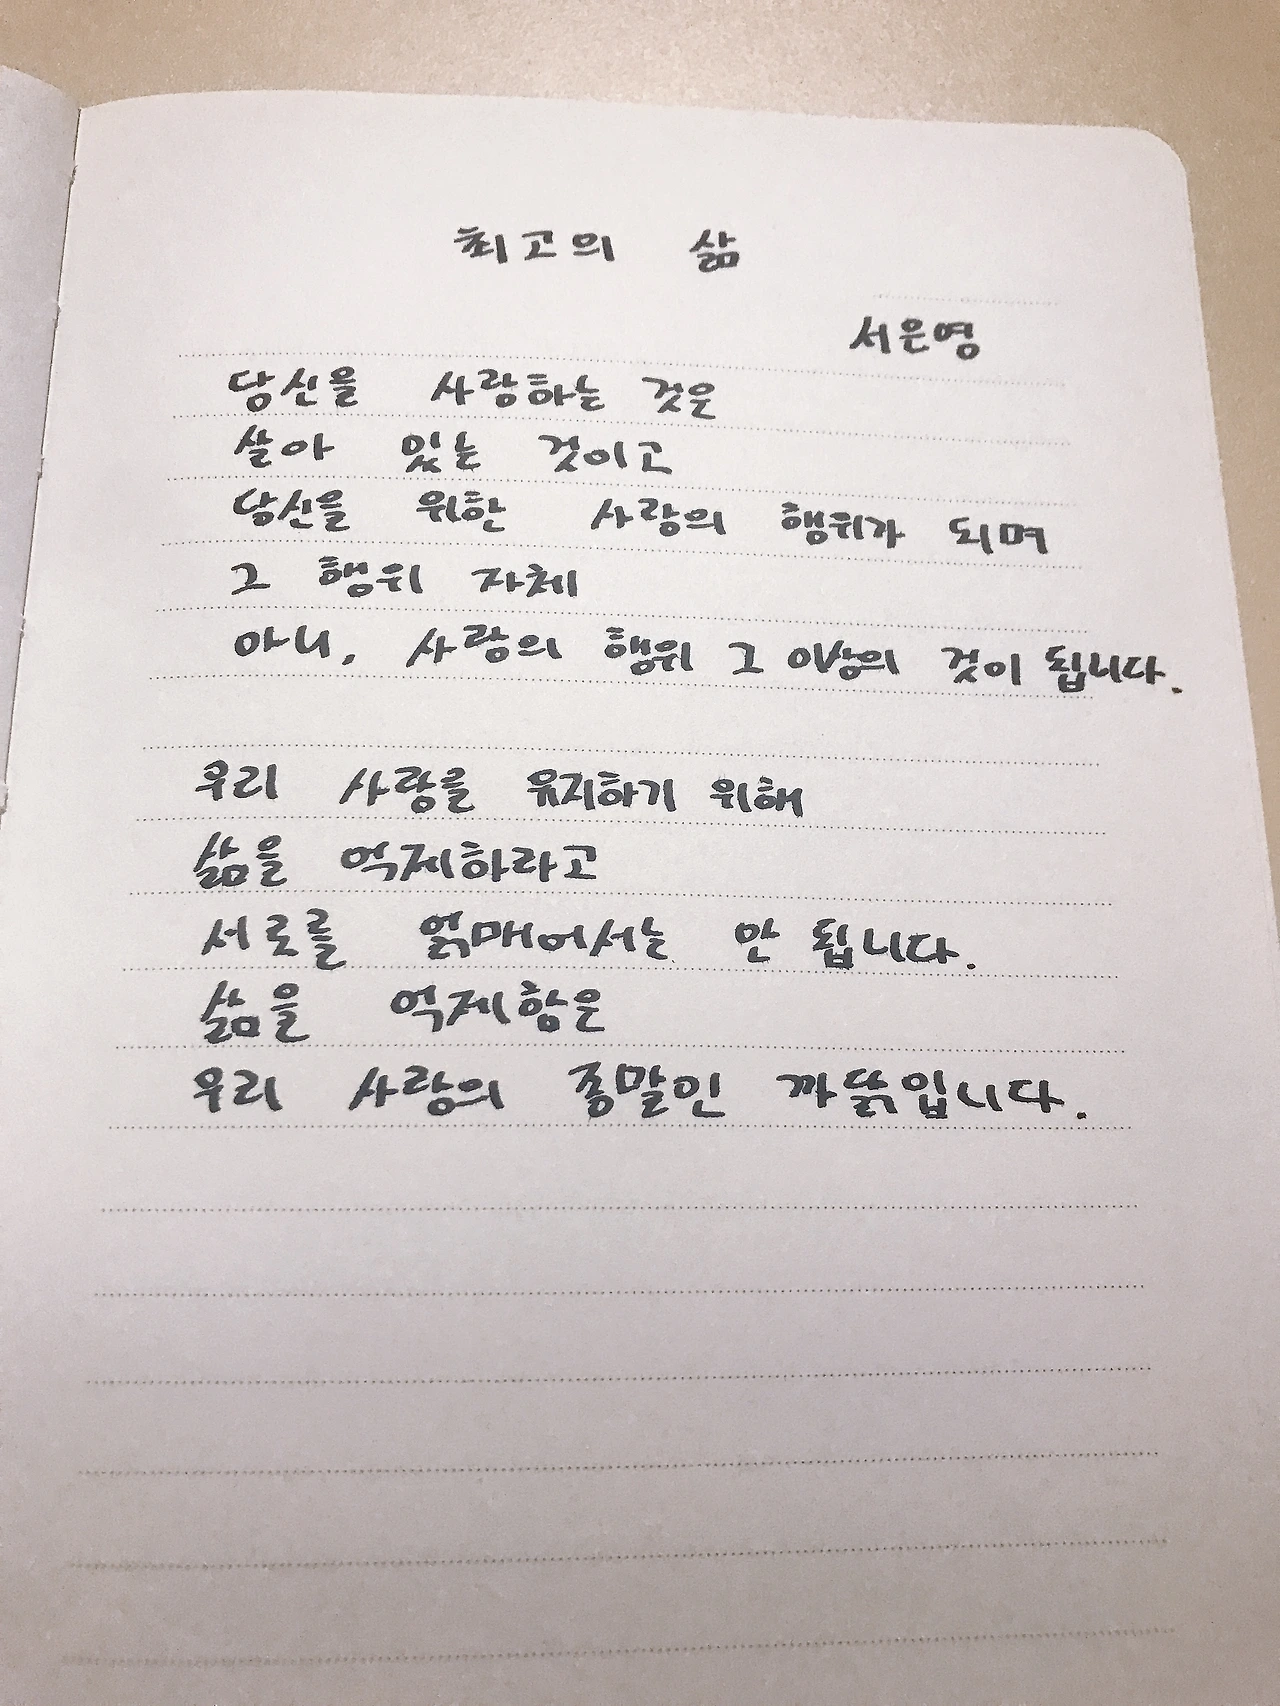 최고의 삶
서은영
당신을 사랑하는 것은
살아 있는 것이고
당신을 위한 사랑의 행위가 되며
그 행위 자체
아니, 사랑의 행위 그 이상의 것이 됩니다.
우리 사랑을 유지하기 위해
삶을 억제하라고
서로를 얽매어서는 안 됩니다.
삶을 억제함은
우리 사랑의 종말인 까닭입니다.